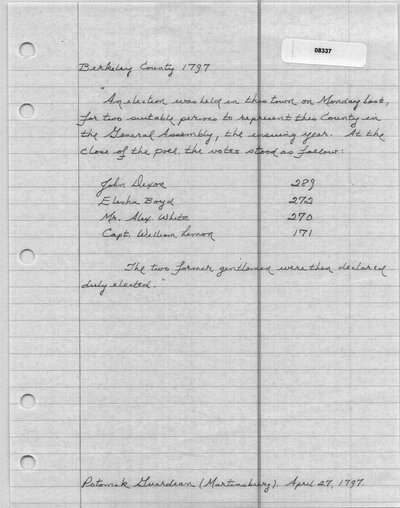 08337
Berkeley County 1797
"An election was held in this town on Monday last,
for two suitable persons to represent this County in
the General Assembly, the ensuing year. At the
close of the poll the votes stood as follow:
John Dixon 289
Elisha Boyd 272
Mr. Alex White 270
Capt. William Lemon 171
The two former gentlemen were then declared
duly elected."
Potomak Guardian (Martinsburg). April 27, 1797.